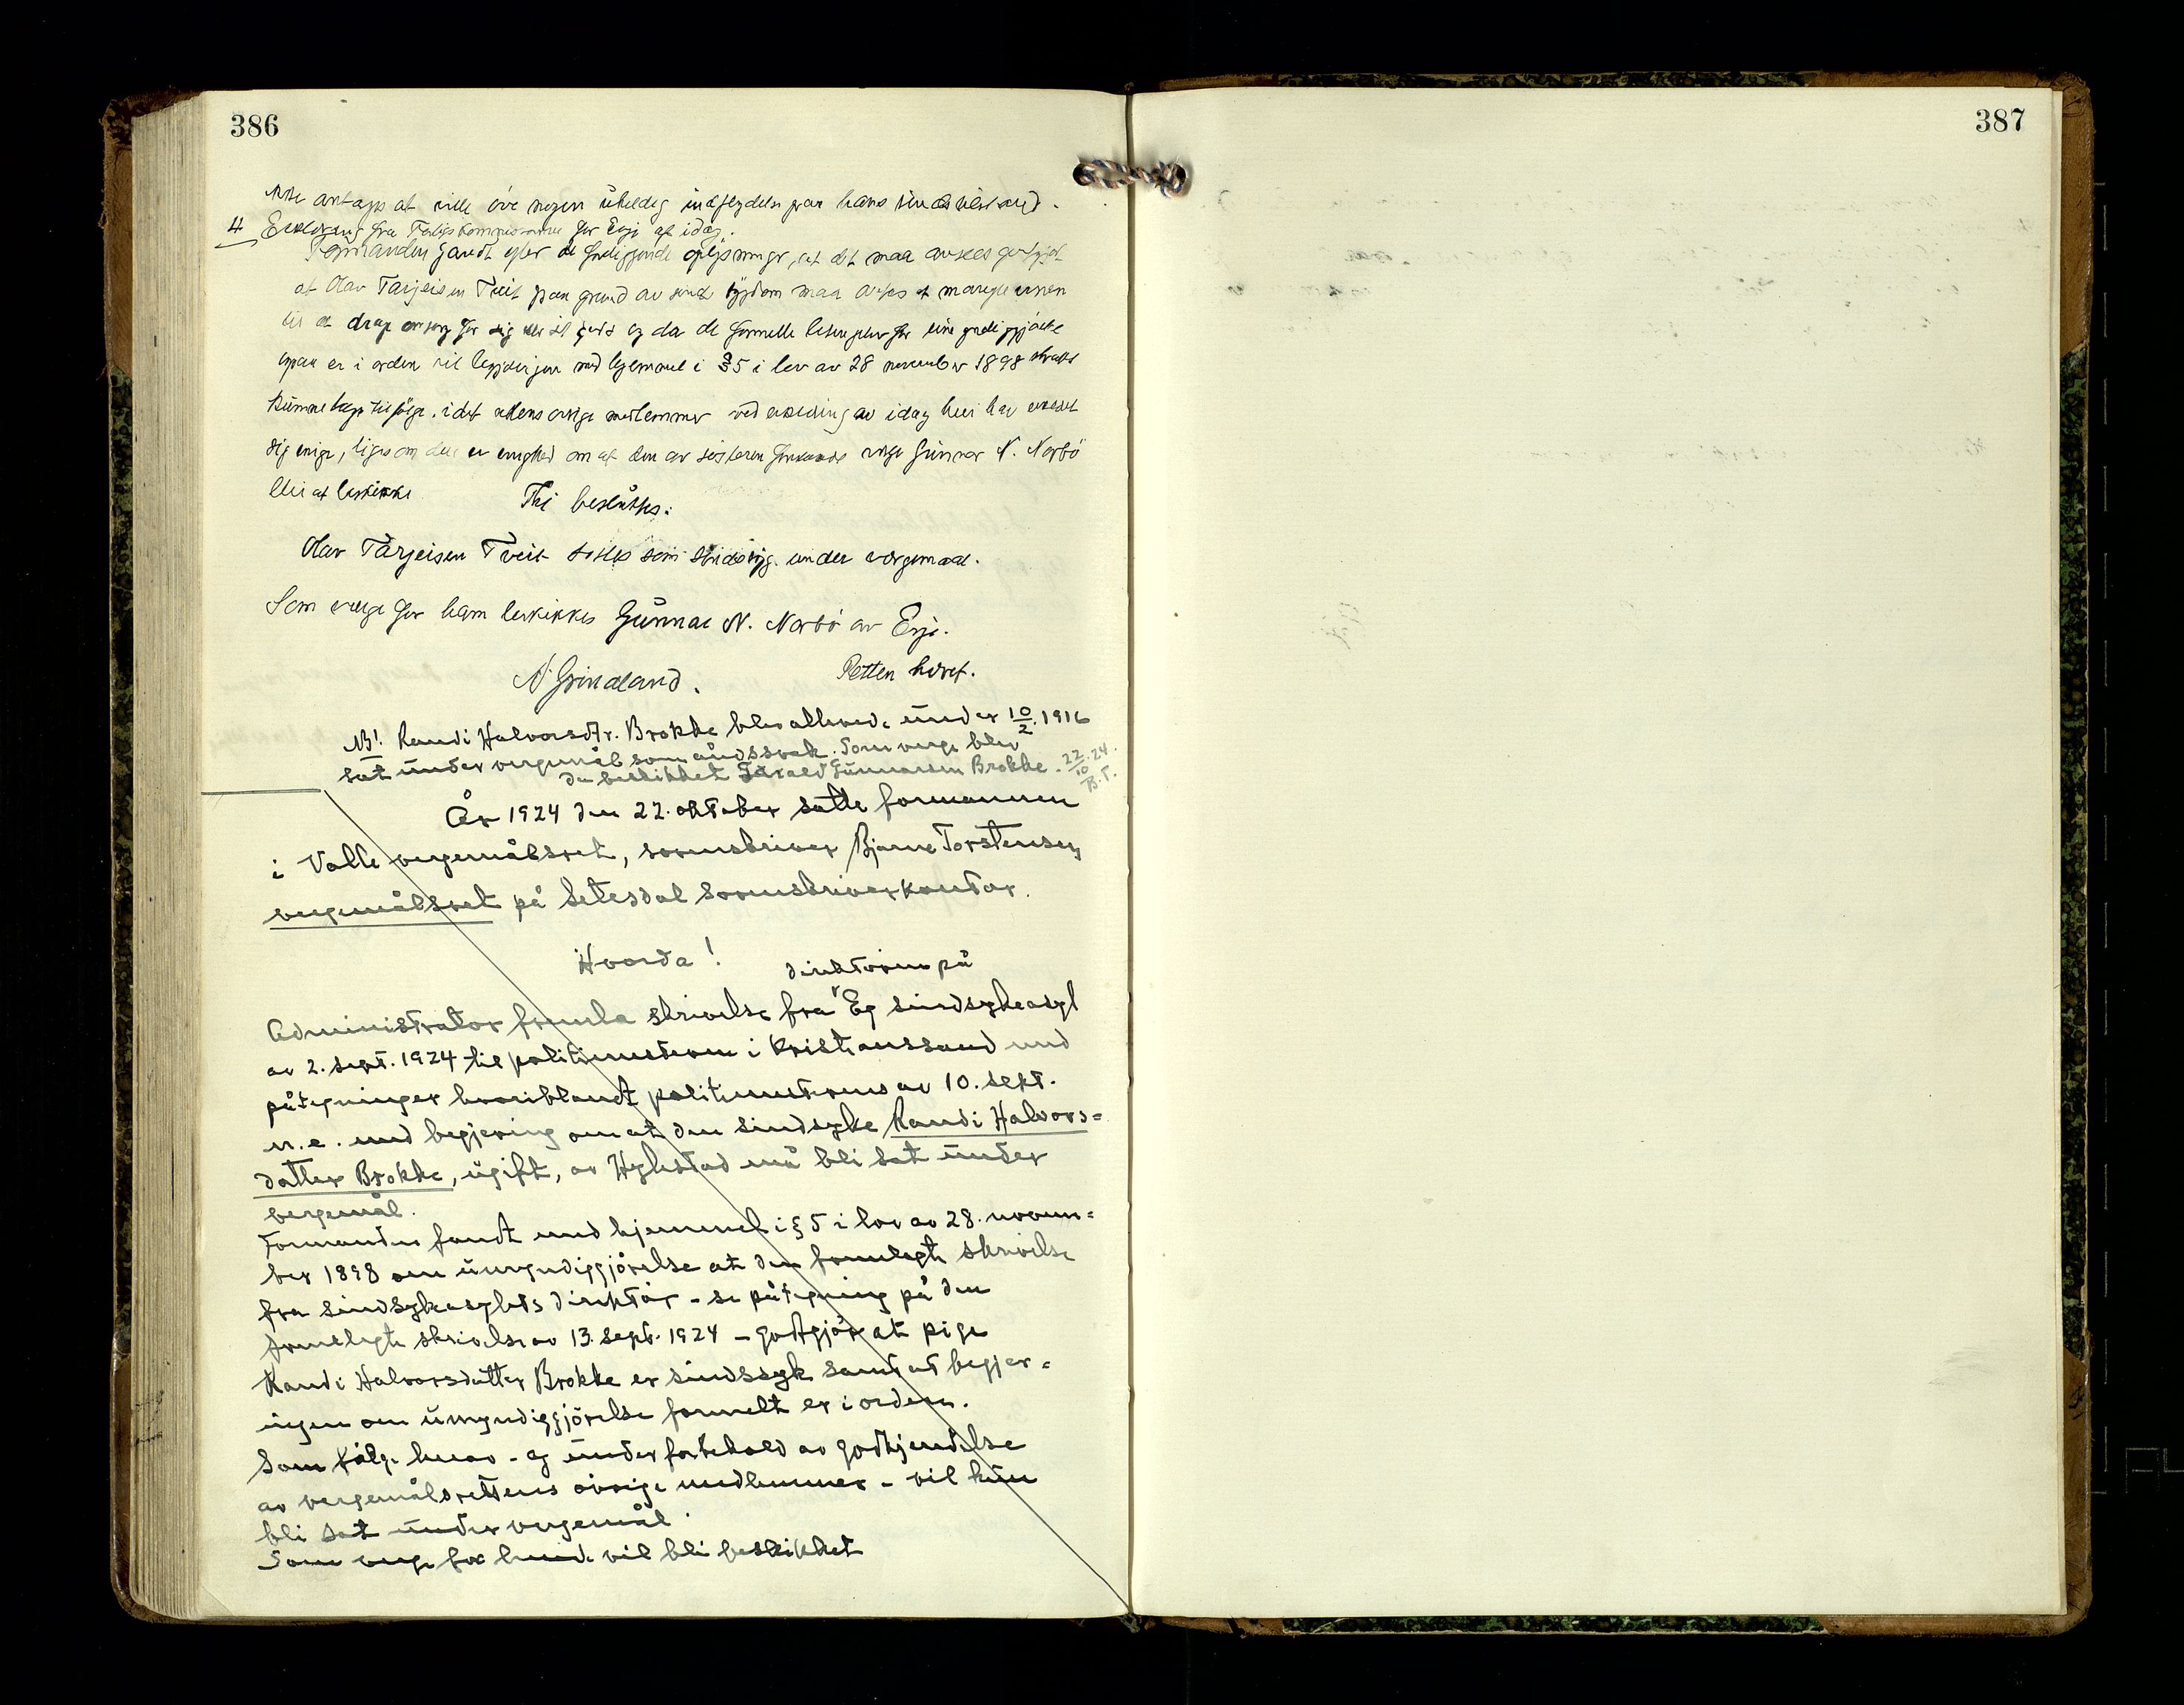 386
387
ikke antages at ville öve nogen uheldig indflydelse paa hans sindstilstand.
4 Erklæring fra Fattigkommissionen for Evje af idag.
Formanden fandt efter de foreliggende oplysninger, at det maa ansees godtgjort
at Olav Tarjeisen Tveit paa grund av sindssygdom maa antas at mangle evnen
til at drage omsorg for sig eller sit gods og da de formelle betingelser for umyndiggjørelse
ogsaa er i orden vil begjæringen med hjemmel i § 5 i lov av 28 november 1898 straks
kunne tages tilfölge, idet rettens övrige medlemmer ved erklæring av idag har erklæret
sig enige, ligesom der er enighed om at den av söskenen foreslaaede verge Gunnar N. Norbö
blir at beskikke
Thi besluttes:
Olav Tarjeisen Tveit sættes som sindssyg under vergemaal.
Som verge for ham beskikkes Gunnar N. Norbö av Evje.
Retten hævet.
N. Grindland.
NB! Randi Halvorsdtr. Brokke blev allerede under 10/2. 1916
sat under vergemål som åndssvak. Som verge blev
da beskikket Tarald Gunnarsen Brokke. 22/10 24.
B.T.
År 1924 den 22. oktober satte formannen
i Valle vergemålsret, sorenskriver Bjarne Torstensen
vergemålsret på Setesdal sorenskriverkontor.
Hvorda!
direktøren på
Administrator fremla skrivelse fra Eg sindsykeasyl
av 2. sept. 1924 til politimesteren i Kristianssand med
påtegninger hvoriblandt politimesterens av 10. sept.
n.e. med begjering om at den sindsyke Randi Halvors=
datter Brokke, ugift, av Hylestad må bli sat under
vergemål.
Formanden fandt med hjemmel i § 5 i lov av 28. novem=
ber 1898 om umyndiggjörelse at den fremlagte skrivelse
fra sindsykeasylets direktör - se påtegning på den
fremlagte skrivelse av 13. sept. 1924 - godtgjör at pige
Randi Halvorsdatter Brokke er sindssyk samt at begjer=
ingen om umyndiggjörelse formelt er i orden.
Som fölge herav - og under forbehold av godkjendelse
av vergemålsrettens övrige medlemmer - vil hun
bli sat under vergemål.
Som verge for hende vil bli beskikket